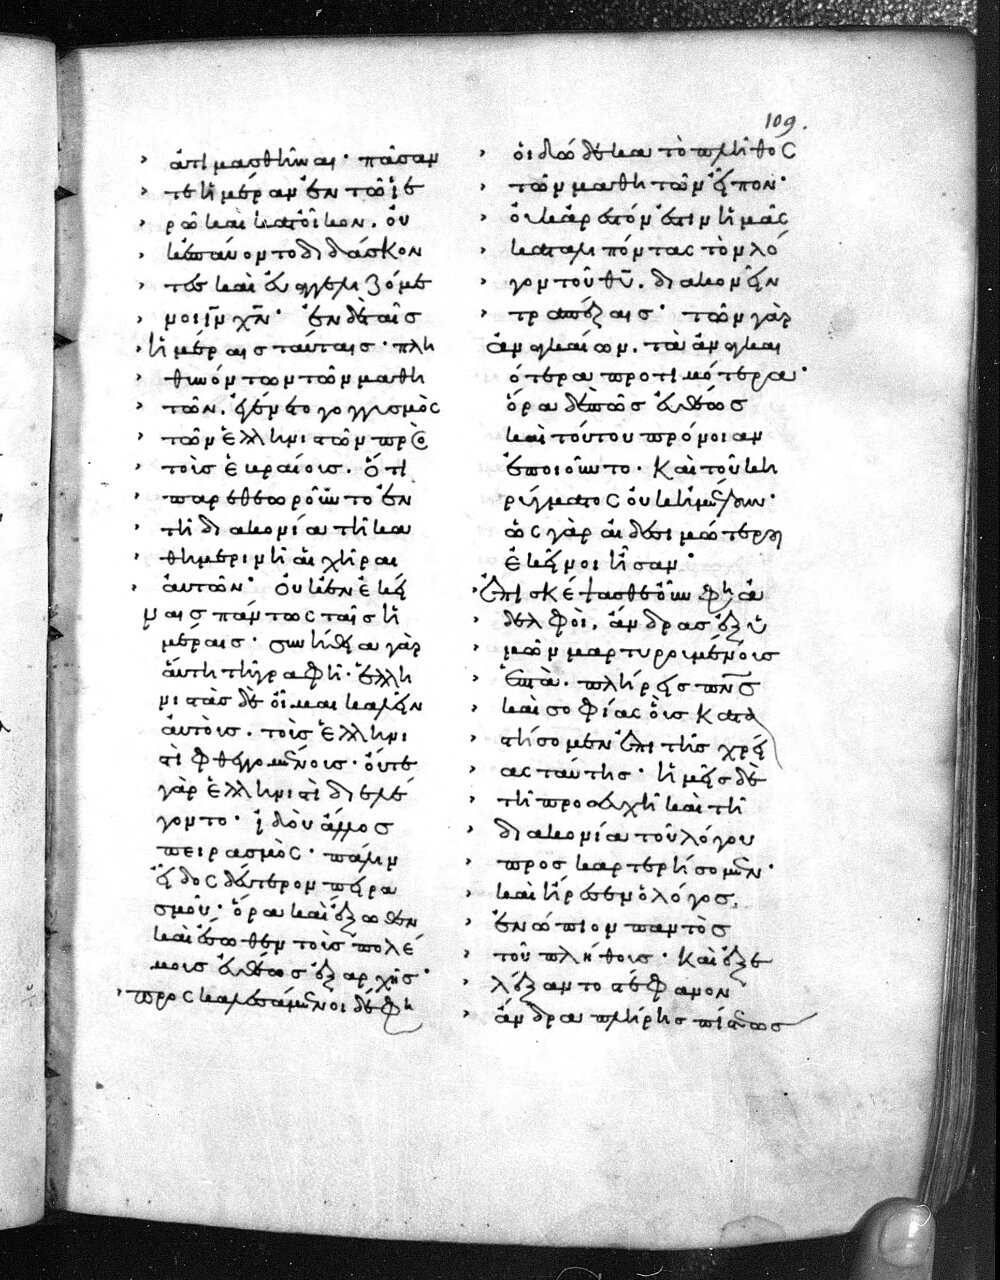 109.
ἀτιμασθῆναι· πᾶσαν
τε ἡμέραν ἐν τῶ ἱε
ρῶ καὶ κατοίκον. οὐ
κ ἐπαύοντο διδάσκον
τες καὶ εὐαγγελιζόμε
νοι ιν χν· ἐν δὲ ταῖσ
ἡμέραισ ταύταισ· πλη
θυνόντων τῶν μαθη
τῶν. ἐγένετο γογγυσμὸς
τῶν ἑλληνιστῶν πρὸς
τοὺσ ἑβραίουσ. ὅτι
παρεθεωροῦντο ἐν
τῆ διακονία τῆ κα
θημερινῆ αἱ χῆραι
αὐτῶν· οὐκ ἐν ἐκεί
ναισ πάντως ταῖσ ἡ
μέραισ· συνήθεια γὰρ
αὕτη τῆ γραφῆ· ἑλλη
νιστὰσ δὲ οἶμαι καλεῖν
αὐτοὺσ. τοὺσ ἑλληνι
στὶ φθεγγομένουσ· οὔτε
γὰρ ἑλληνιστὶ διελέ
γοντο· ἰδοὺ ἄλλοσ
πειρασμὸς· πάλιν
εἶδος δεύτερον πειρα
σμοῦ· ὅρα καὶ ἔξωθεν
καὶ ἔσωθεν τοὺσ πολέ
μουσ εὐθέωσ ἐξαρχῆσ·
προςκαλεσάμενοι δέ φη
οἱ δώδεκα τὸ πλῆθος
τῶν μαθητῶν εἶπον·
οὐκ ἀρεστόν ἐστιν ἡμᾶς
καταλιπόντας τὸν λό
γον τοῦ θυ. διακονεῖν
τραπέζαισ· τῶν γὰρ
ἀναγκαίων. τὰ ἀναγκαι
ότερα προτιμότερα·
ὅρα δὲ πῶσ εὐθέωσ
καὶ τούτου πρόνοιαν
ἐποιοῦντο. καὶ τοῦ κη
ρύγματος οὐκ ἠμέλουν·
ὡς γὰρ αἰδεσιμώτεροι
ἐκεῖνοι ἦσαν·
ἐπισκέψασθε οὖν φη ἀ
δελφοὶ. ἄνδρασ ἐξ ὑ
μῶν μαρτυρουμένουσ
ἑπτὰ. πλήρεισ πνσ
καὶ σοφίας οὓσ κατα
στήσομεν ἐπὶ τῆσ χρεί
ας ταύτησ· ἡμεῖσ δὲ
τῆ προσευχῆ καὶ τῆ
διακονία τοῦ λόγου
προσκαρτερήσομεν·
καὶ ἤρεσεν ὁ λόγοσ.
ἐνώπιον παντὸσ
τοῦ πλήθουσ· καὶ ἐξε
λέξαντο στέφανον
ἄνδρα πλήρησ πίστεωσ